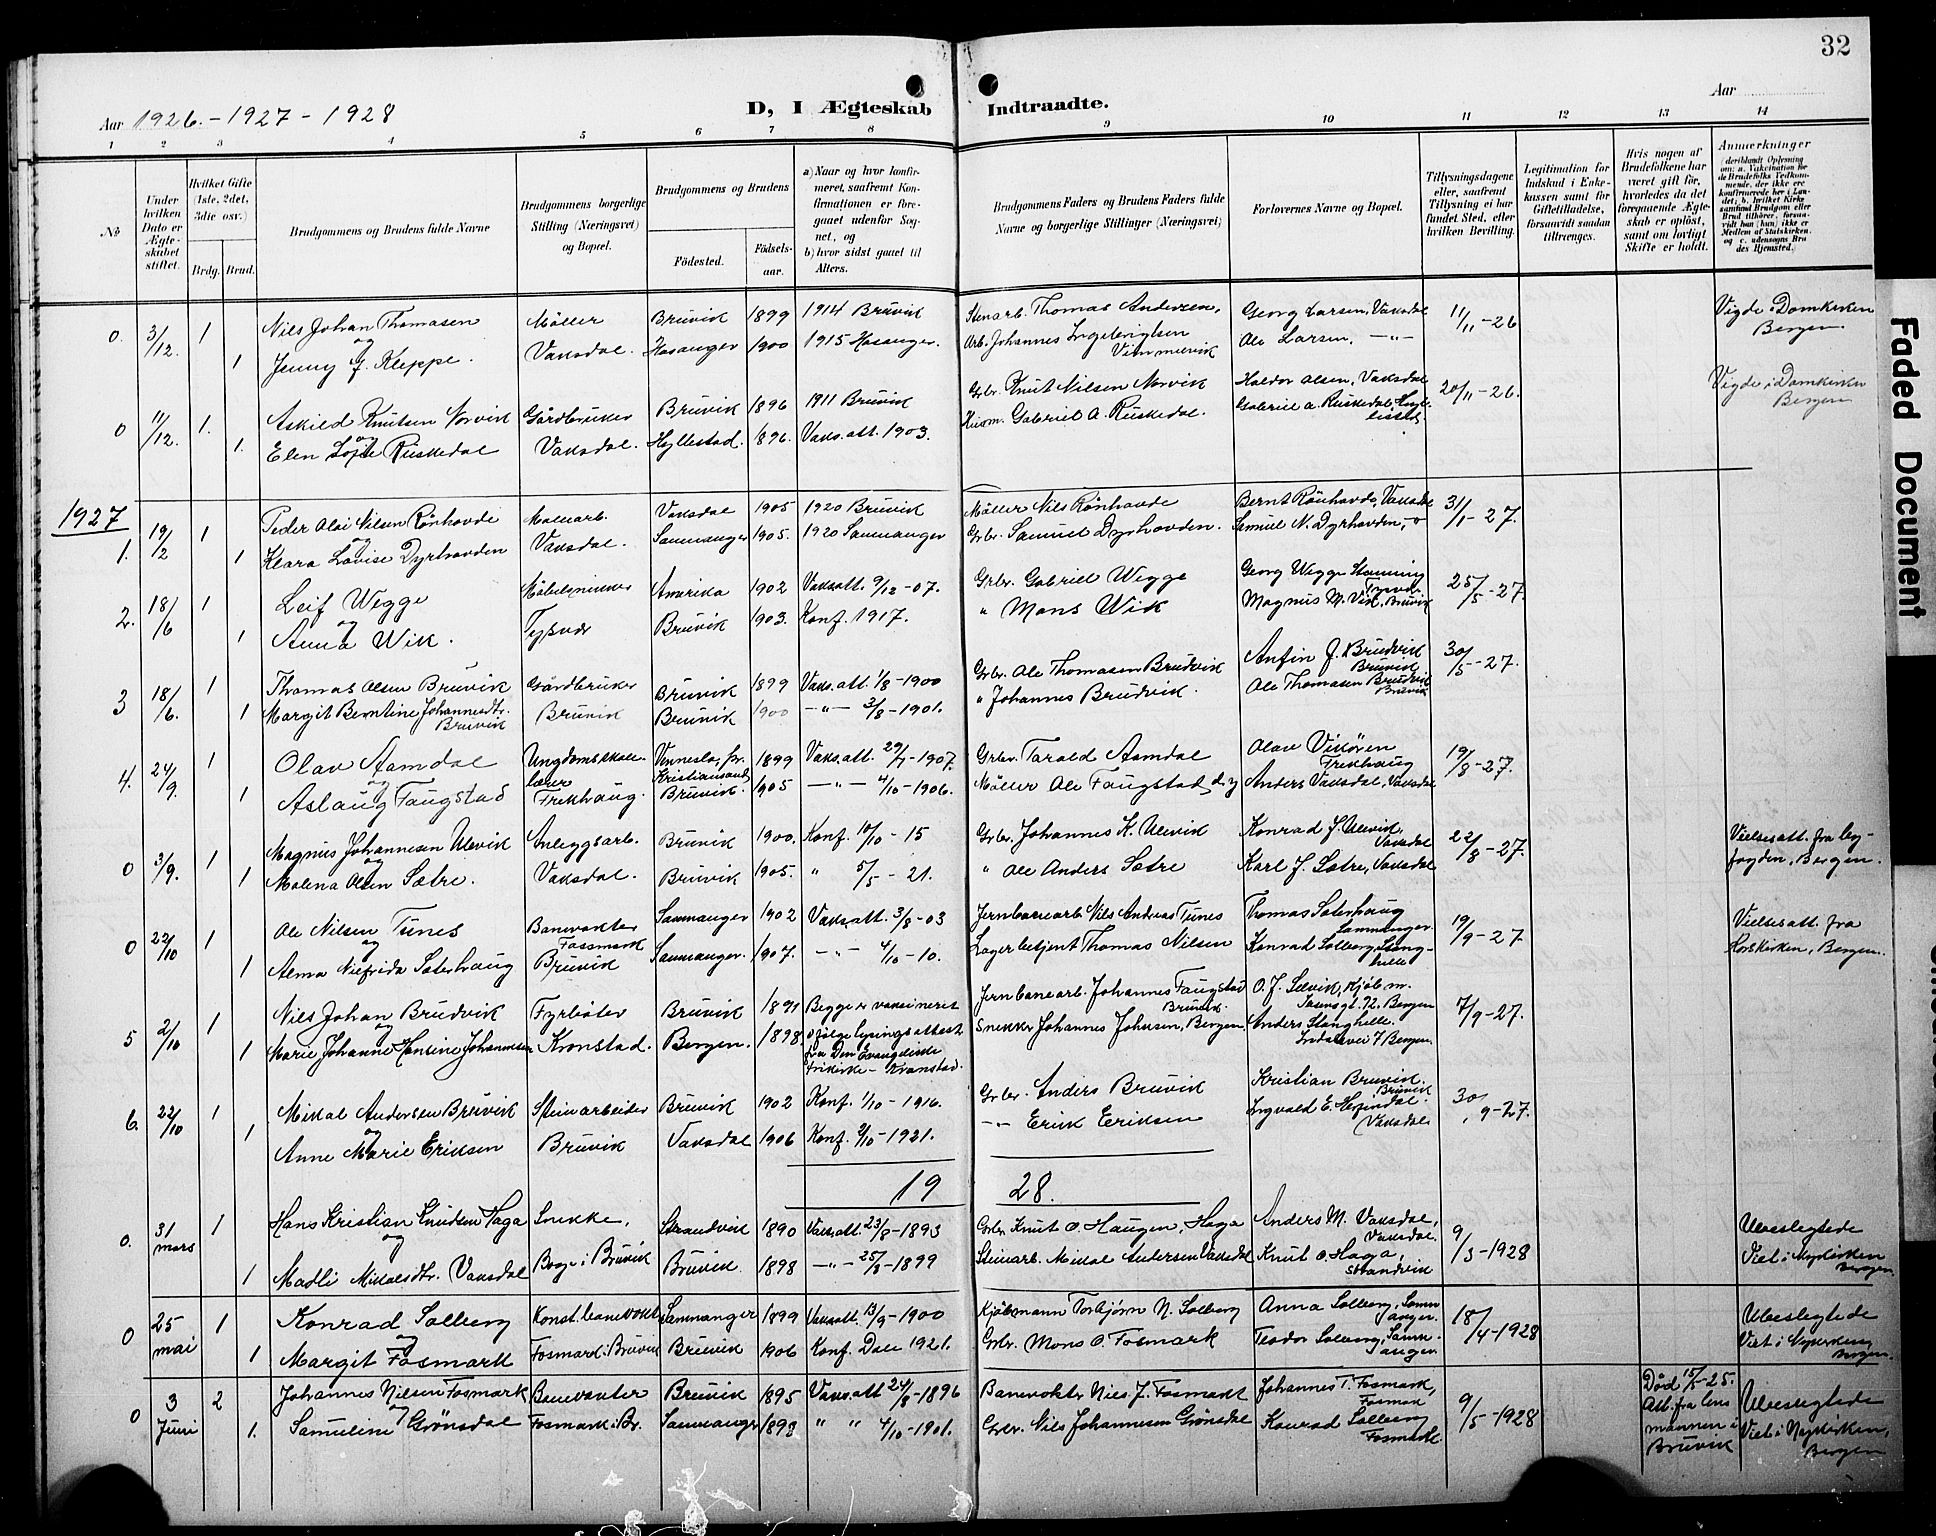 32
Aar 1926. - 1927 - 1928
D, I Ægteskab Indtraadte.
Aar
1 2 3 4 5 6 7 8 9 10 11 12 13 14
No
Under hvilken Dato er Ægteskabet stiftet.
Hvilket Gifte (1ste, 2det, 3die osv.)
Brdg. Brud.
Brudgommens og Brudens fulde Navne
Brudgommens borgerlige Stilling (Næringsvei) og Bopæl.
Brudgommens og Brudens
Födested.
Födsels-aar.
a) Naar og hvor konfirmeret, saafremt Konfirmationen er foregaaet udenfor Sognet, og
b) hvor sidst gaaet til Alters.
Brudgommens Faders og Brudens Faders fulde Navne og borgerlige Stillinger (Næringsvei)
Forlovernes Navne og Bopæl.
Tillysningsdagene eller, saafremt Tillysning ei har fundet Sted, efter hvilken Bevilling.
Legitimation for Indskud i Enkekassen samt for Giftetilladelse, forsaavidt saadan tiltrænges.
Hvis nogen af Brudefolkene har været gift för, hvorledes da det foregaaende Ægteskab er oplöst, samt om lovligt Skifte er holdt.
Anmærkninger
0. 3/12. 1 Nils Johan Thomasen Möller Bruvik 1899 1914 Bruvik Stenarb. Thomas Andersen, Georg Larsen, Vaksdal 11/11-26 Vigde i Domkirken Bergen
og
1 Jenny J. Kleppe. Vaksdal. Hosanger 1900 1915 Hosanger. Arb. Johannes Ingebrigtsen Ole Larsen, -"-
0 11/12. 1. Askild Knutsen Norvik Gårdbruker Bruvik 1896 1911 Bruvik Grbr. Knut Nilsen Norvik Haldor Olsen, Vaksdal 20/11-26. Vigde i Domkirken Bergen
og
1. Elen Sofie Ruskedal Vaksdal. Hyllestad. 1896. Vaks.att. 1903. Gabriel A. Ruskedal. Gabriel A. Ruskedal
1927
1. 19/2 1 Peder Olai Nilsen Rönhovde Vaksdal 1905 1920 Bruvik Möller Nils Rönhovde Bernt Rönhovde, Vaksdal 31/1-27.
og
1 Klara Lovise Dyrhovden Vaksdal. Samnanger 1905. 1920 Samnanger Grbr. Samuel Dyrhovden. Samuel N. Dyrhovden, -"-
2. 18/6 1 Leif Wegge Möbelsnikker Amerika 1902 Vaks.att. 9/12-07. Grbr. Gabriel Wegge Georg Wegge 25/5-27
og
1 Anna Wik. Tysvær Bruvik 1903. Konf. 1917. " Mons Wik Magnus M. Vik, Bruvik
3 18/6. 1 Thomas Olsen Bruvik Gårdbruker Bruvik 1899 Vaks.att. 1/8-1900 Grbr. Ole Thomasen Brudvik Anfin J. Brudvik Bruvik 30/5-27.
1 Margit Berntine Johannesdtr. Bruvik Bruvik Bruvik 1900 -"- 3/8-1901. " Johannes Brudvik. Ole Thomasen Brudvik Bruvik
4. 24/9. 1 Olav Aamdal Ungdomsskolelærer Vennesla, pr. Kristiansand 1899 Vaks.att. 29/7-1907. Grbr. Tarald Aamdal Olav Vikören Frekhaug 19/8-27.
og
1 Aslaug Faugstad Frekhaug. Bruvik. 1905 -"- 4/10-1906. Möller Ole Faugstad Anders Vaksdal, Vaksdal
0 3/9. 1 Magnus Johannesen Ulevik Anleggsarb. Bruvik 1900. Konf. 10/10-15 Grbr. Johannes K. Ulevik Konrad J. Ulevik, Vaksdal 22/8-27. Vielsesatt. fra byfogden, Bergen.
og
1 Malena Olsen Sætre. Vaksdal. Bruvik 1905. " 5/5-21. " Ole Anders Sætre Karl J. Sætre, Vaksdal
0 22/10 1 Ole Nilsen Tunes Banevokter Samnanger 1902 Vaks.att. 3/8-03 Jernbanearb. Nils Andreas Tunes Thomas Säterhaug Samnanger. 19/9-27 Vielsesatt. fra Korskirken, Bergen.
og
1 Alma Säterhaug Fossmark Bruvik Samnanger. 1907. -"- 4/10-10. Lagerbetjent Thomas Nilsen Konrad Solberg, Stanghelle
5 2/10 1 Nils Johan Brudvik Fyrböter Bruvik 1891 Begge er vaksineret Jernbanearb. Johannes Faugstad Bruvik. O. J. 72. Bergen 7/9-27.
og
1 Marie Johanne Hansine Johannesen Kronstad. Bergen. 1898. ifölge lysningsattest fra Den Evangeliske frikirke - Kronstad. Snekker Johannes Johnsen, Bergen Anders Stanghelle. 7 Bergen.
6. 22/10 1 Mikal Andersen Bruvik Steinarbeider Bruvik 1902 Konf. 1/10-1916. Grbr. Anders Bruvik Kristian Bruvik. Bruvik 30/9-27.
og
1 Anne Marie Eriksen Bruvik Vaksdal 1906 Konf. 9/10-1921. -"- Erik Eriksen Ingvald E. Herfindal. Vaksdal
19 28.
0. 31 mars 1 Hans Kristian Knudsen Haga Snekke, Strandvik 1890 Vaks.att. 23/8-1893 Grbr. Knut O Haugen, Haga Anders M. Vaksdal, Vaksdal. 9/3-1928 Ubeslegtede
og
1 Madli Mikalsdtr. Vaksdal Boge i Bruvik Bruvik. 1898 -"- 25/8-1899 Steinarb. Mikal Andersen Vaksdal Knut O. Haga, Strandvik Viet i Nykirken Bergen.
0 25 mai 1 Konrad Solberg Konst. banevokter Samnanger 1899 Vaks.att. 13/9-1900 Kjöbmann Torbjörn N. Solberg Anna Solberg, Samnanger. 18/4-1928 Ubeslegtede
og
1 Margit Fosmark Fosmark i Bruvik Bruvik 1906 Konf. Dale 1921. Grbr. Mons O. Fosmark Teodor Solberg, Samnanger Viet i Nykirken, Bergen.
0 3 Juni 2 Johannes Nilsen Fosmark Banevokter Bruvik 1895 Vaks.att 24/8-1896 Banevokter Nils J. Fosmark Johannes T. Fosmark, Fosmark 9/5-1928 Död 15/5-25. Att. fra lensmannen i Bruvik Ubeslegtede
og
1. Samuline Grönsdal Fosmark i Br. Samnanger 1898 " " 4/10-1901. Grbr. Nils Johannesen Grönsdal Konrad Solberg Fosmark. Viet i Nykirken, Bergen
Faded Document